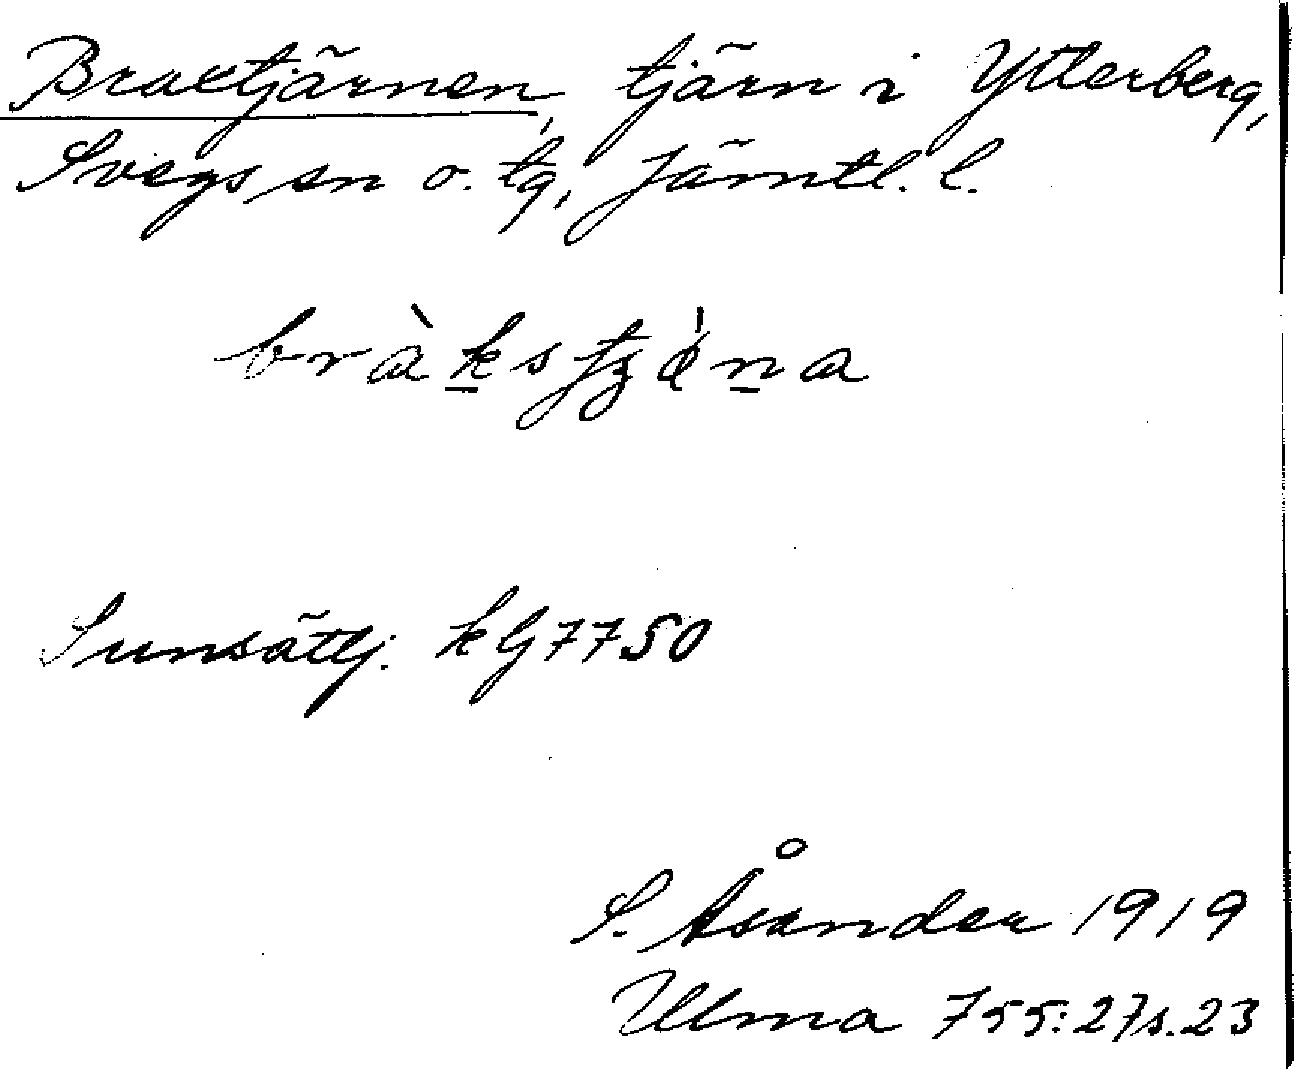 Braxtjärnen, tjärn i Ytterberg,
Svegs sn o. tg, Jämtl. l.
Sunsätlj. kG7750
S. Åsander 1919
Ulma 755:27 s. 23